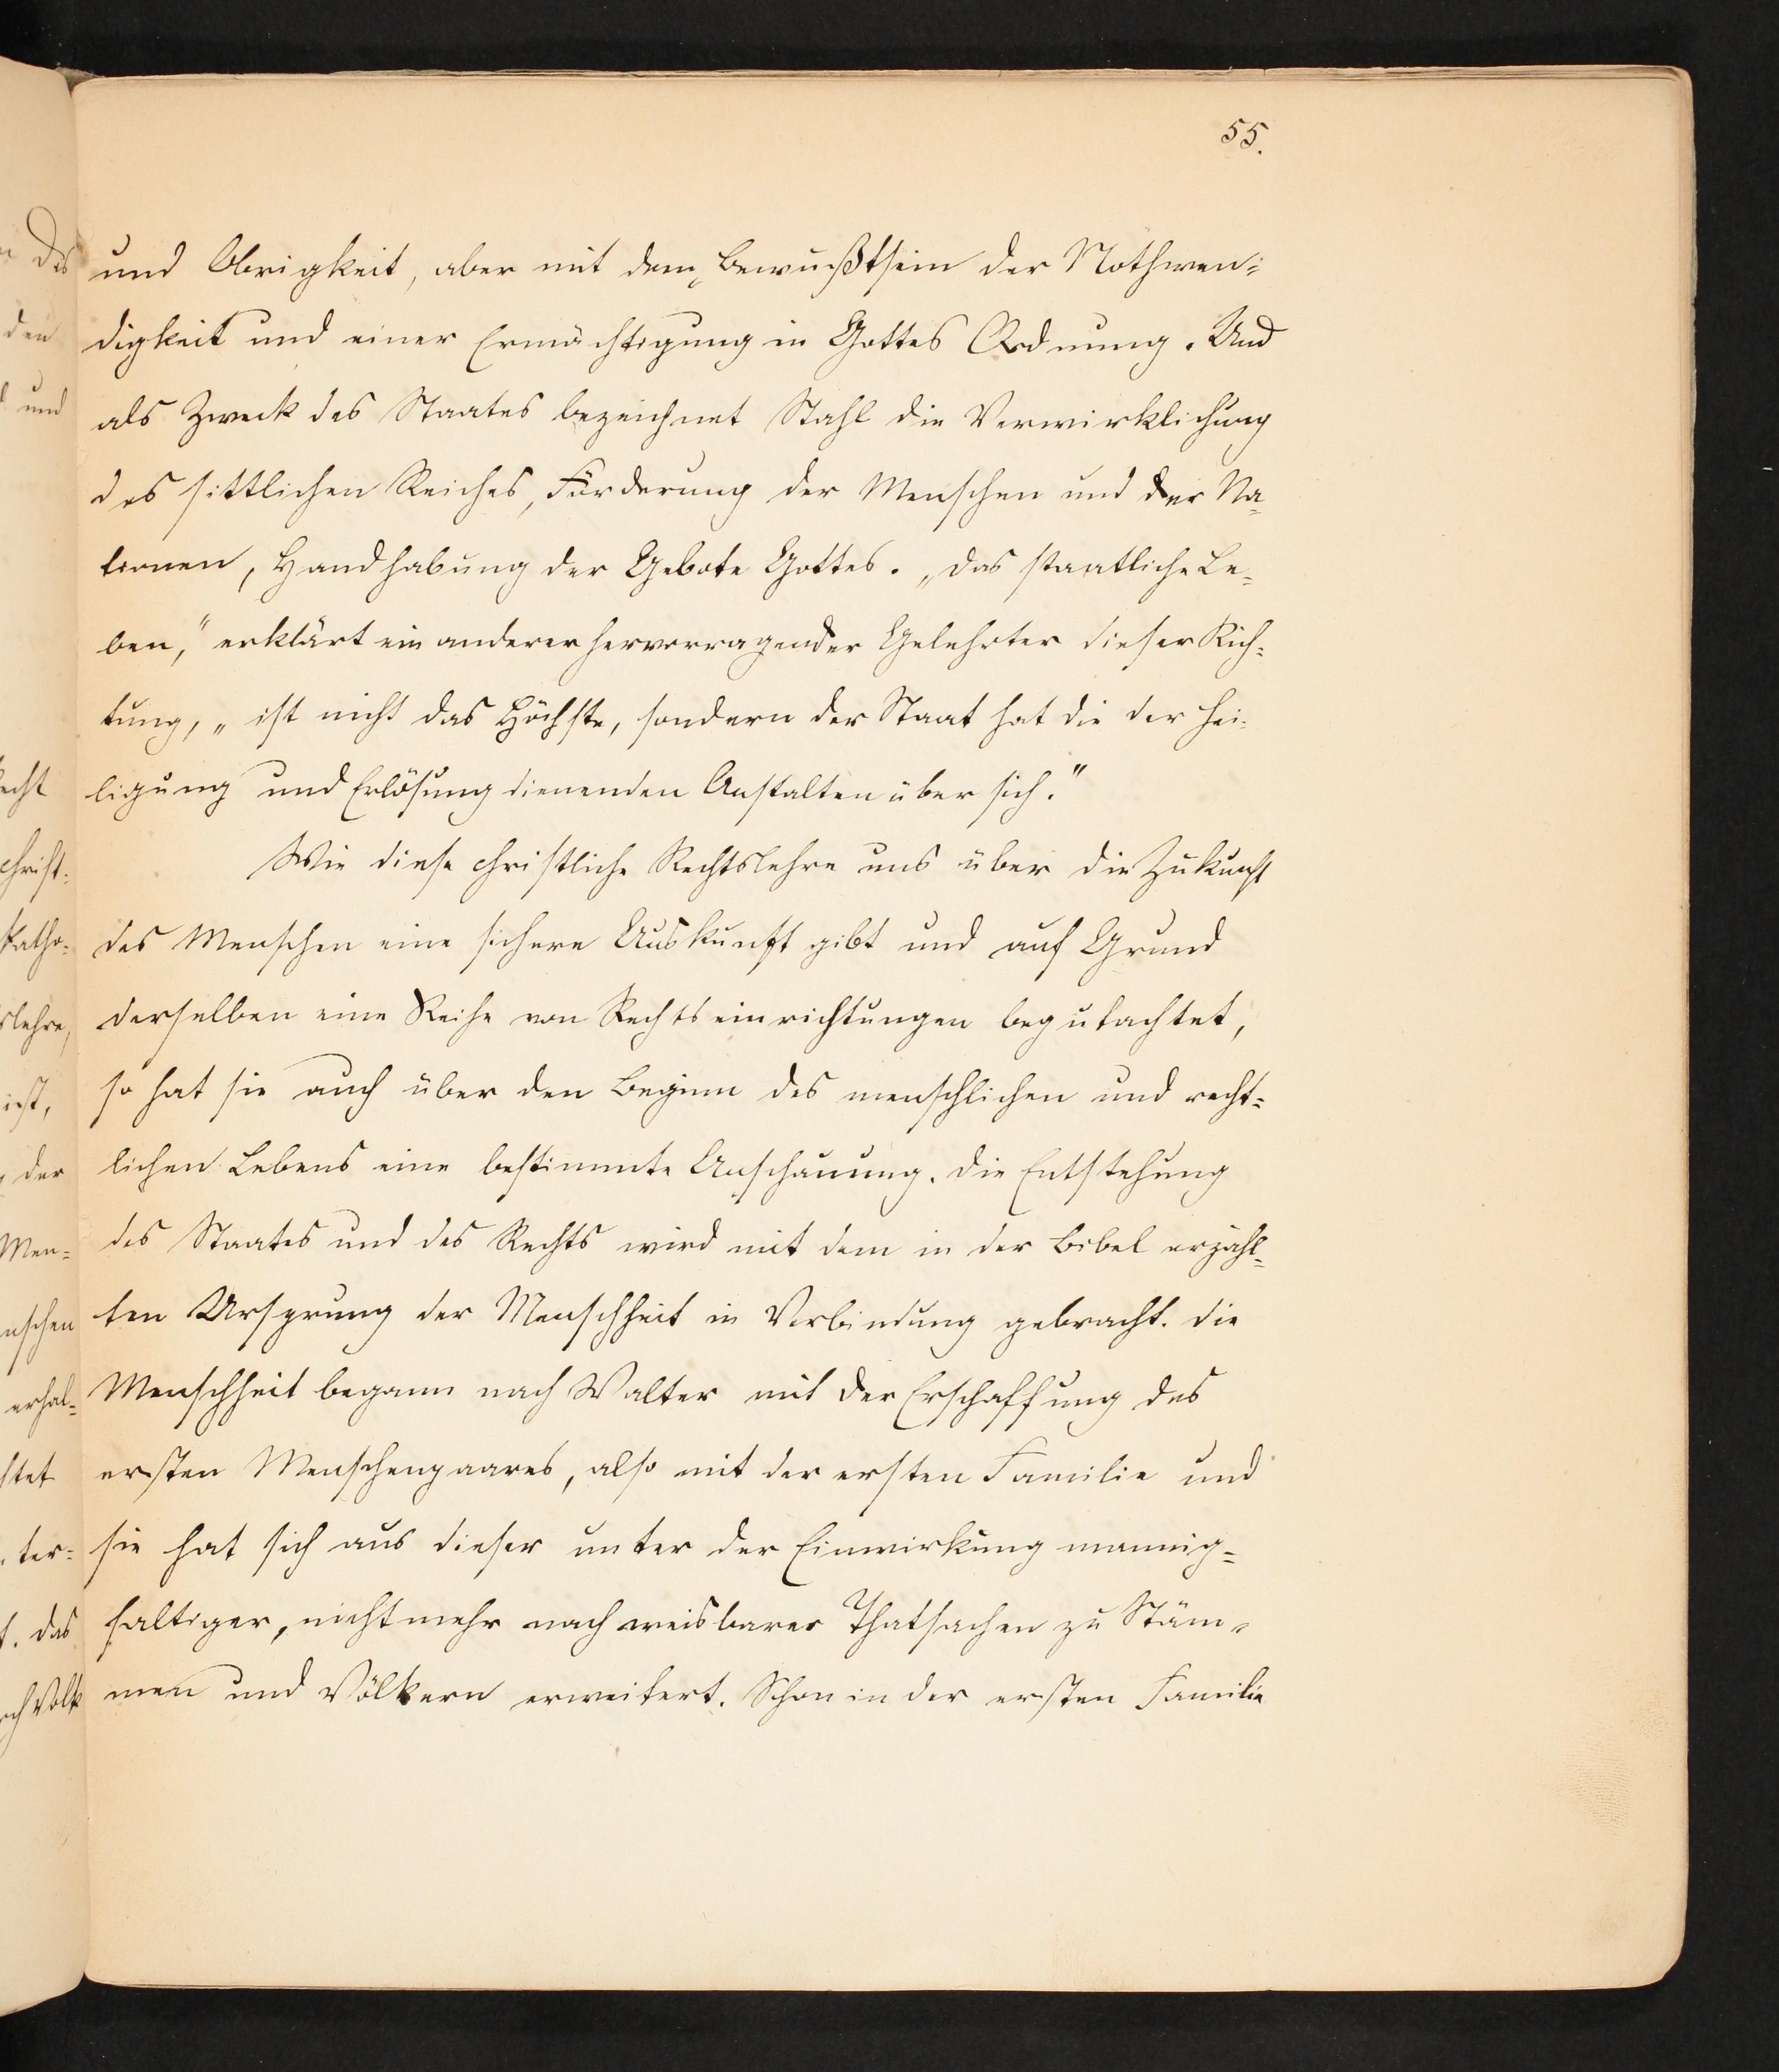 55.
und Obrigkeit, aber mit dem Bewußtsein der Nothwen-
digkeit und einer Ermächtigung in Gottes Ordnung. Und
als Zweck des Staates bezeichnet Stahl die Verwirklichung
des sittlichen Reiches, Förderung der Menschen und der Na-
tionen, Handhabung der Gebote Gottes. „Das staatliche Le-
ben," erklärt ein anderer hervorragender Gelehrter dieser Rich-
tung, „ist nicht das Höchste, sondern der Staat hat die der Hei-
ligung und Erlösung dienenden Anstalten über sich."
Wie diese christliche Rechtslehre uns über die Zukunft
des Menschen eine sichere Auskunft gibt und auf Grund
derselben eine Reihe von Rechtseinrichtungen begutachtet,
so hat sie auch über den Beginn des menschlichen und recht-
lichen Lebens eine bestimmte Anschauung. Die Entstehung
des Staates und des Rechts wird mit dem in der Bibel erzähl-
ten Ursprung der Menschheit in Verbindung gebracht. Die
Menschheit begann nach Walter mit der Erschaffung des
ersten Menschenpaares, also mit der ersten Familie und
sie hat sich aus dieser unter der Einwirkung mannig-
faltiger, nicht mehr nachweisbarer Thatsachen zu Stäm-
men und Völkern erweitert. Schon in der ersten Familie
des
den
und
echt
christ-
katho-
slehre,
iest,
der
Men-
nschen
erhal-
htet
ter-
t. Das
ch Volk